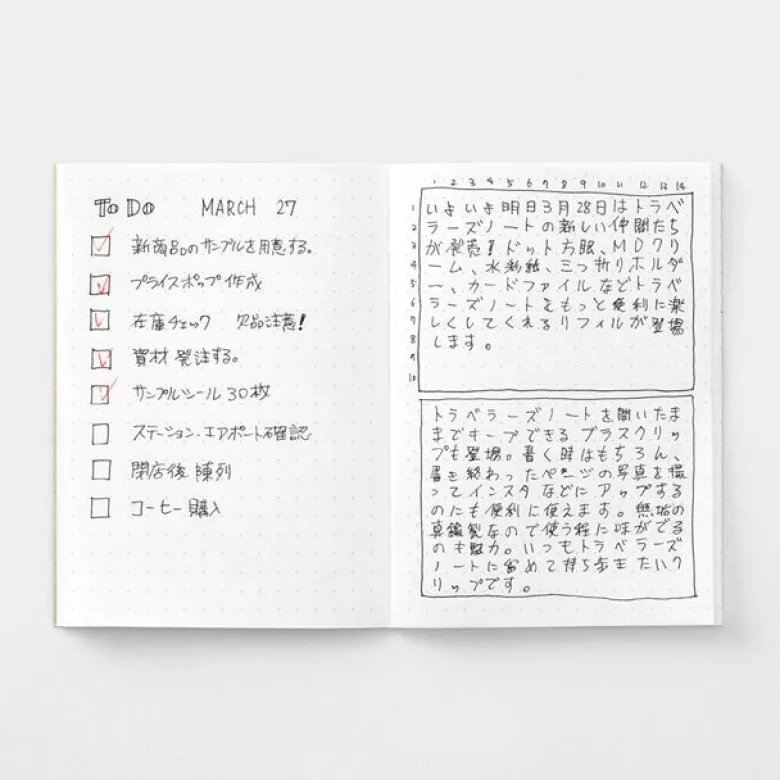 To Do MARCH 27
新商品のサンプルを用意する。
プライスポップ作成
在庫チェック 欠品注意!
資材発注する。
サンプルシール 30枚
ステーション・エアポート確認
閉店後 陳列
コーヒー購入
1 2 3 4 5 6 7 8 9 10 11 12 13 14
1 いよいよ明日3月28日はトラベ
2 ラーズノートの新しい仲間たち
3 が発売!ドット方眼、MDクリ
4 ーム、水彩紙、三つ折りホルダ
5 ー、カードファイルなどトラベ
6 ラーズノートをもっと便利に楽
7 しくしてくれるリフィルが登場
8 します。
9
10
トラベラーズノートを開いたま
までキープできるブラスクリッ
プも登場。書く時はもちろん、
書き終わったページの写真を撮
ってインスタなどにアップする
のにも便利に使えます。無垢の
真鍮製なので使う程に味がでる
のも魅力。いつもトラベラーズ
ノートに留めて持ち歩きたいク
リップです。